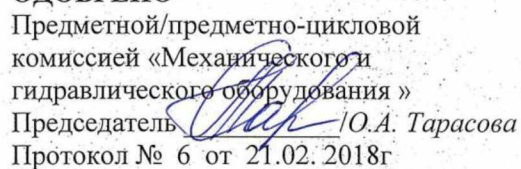 ОДОБРЕНО
Предметной/предметно-цикловой
комиссией «Механического и
гидравлического оборудования »
Председатель /О.А. Тарасова
Протокол № 6 от 21.02. 2018г